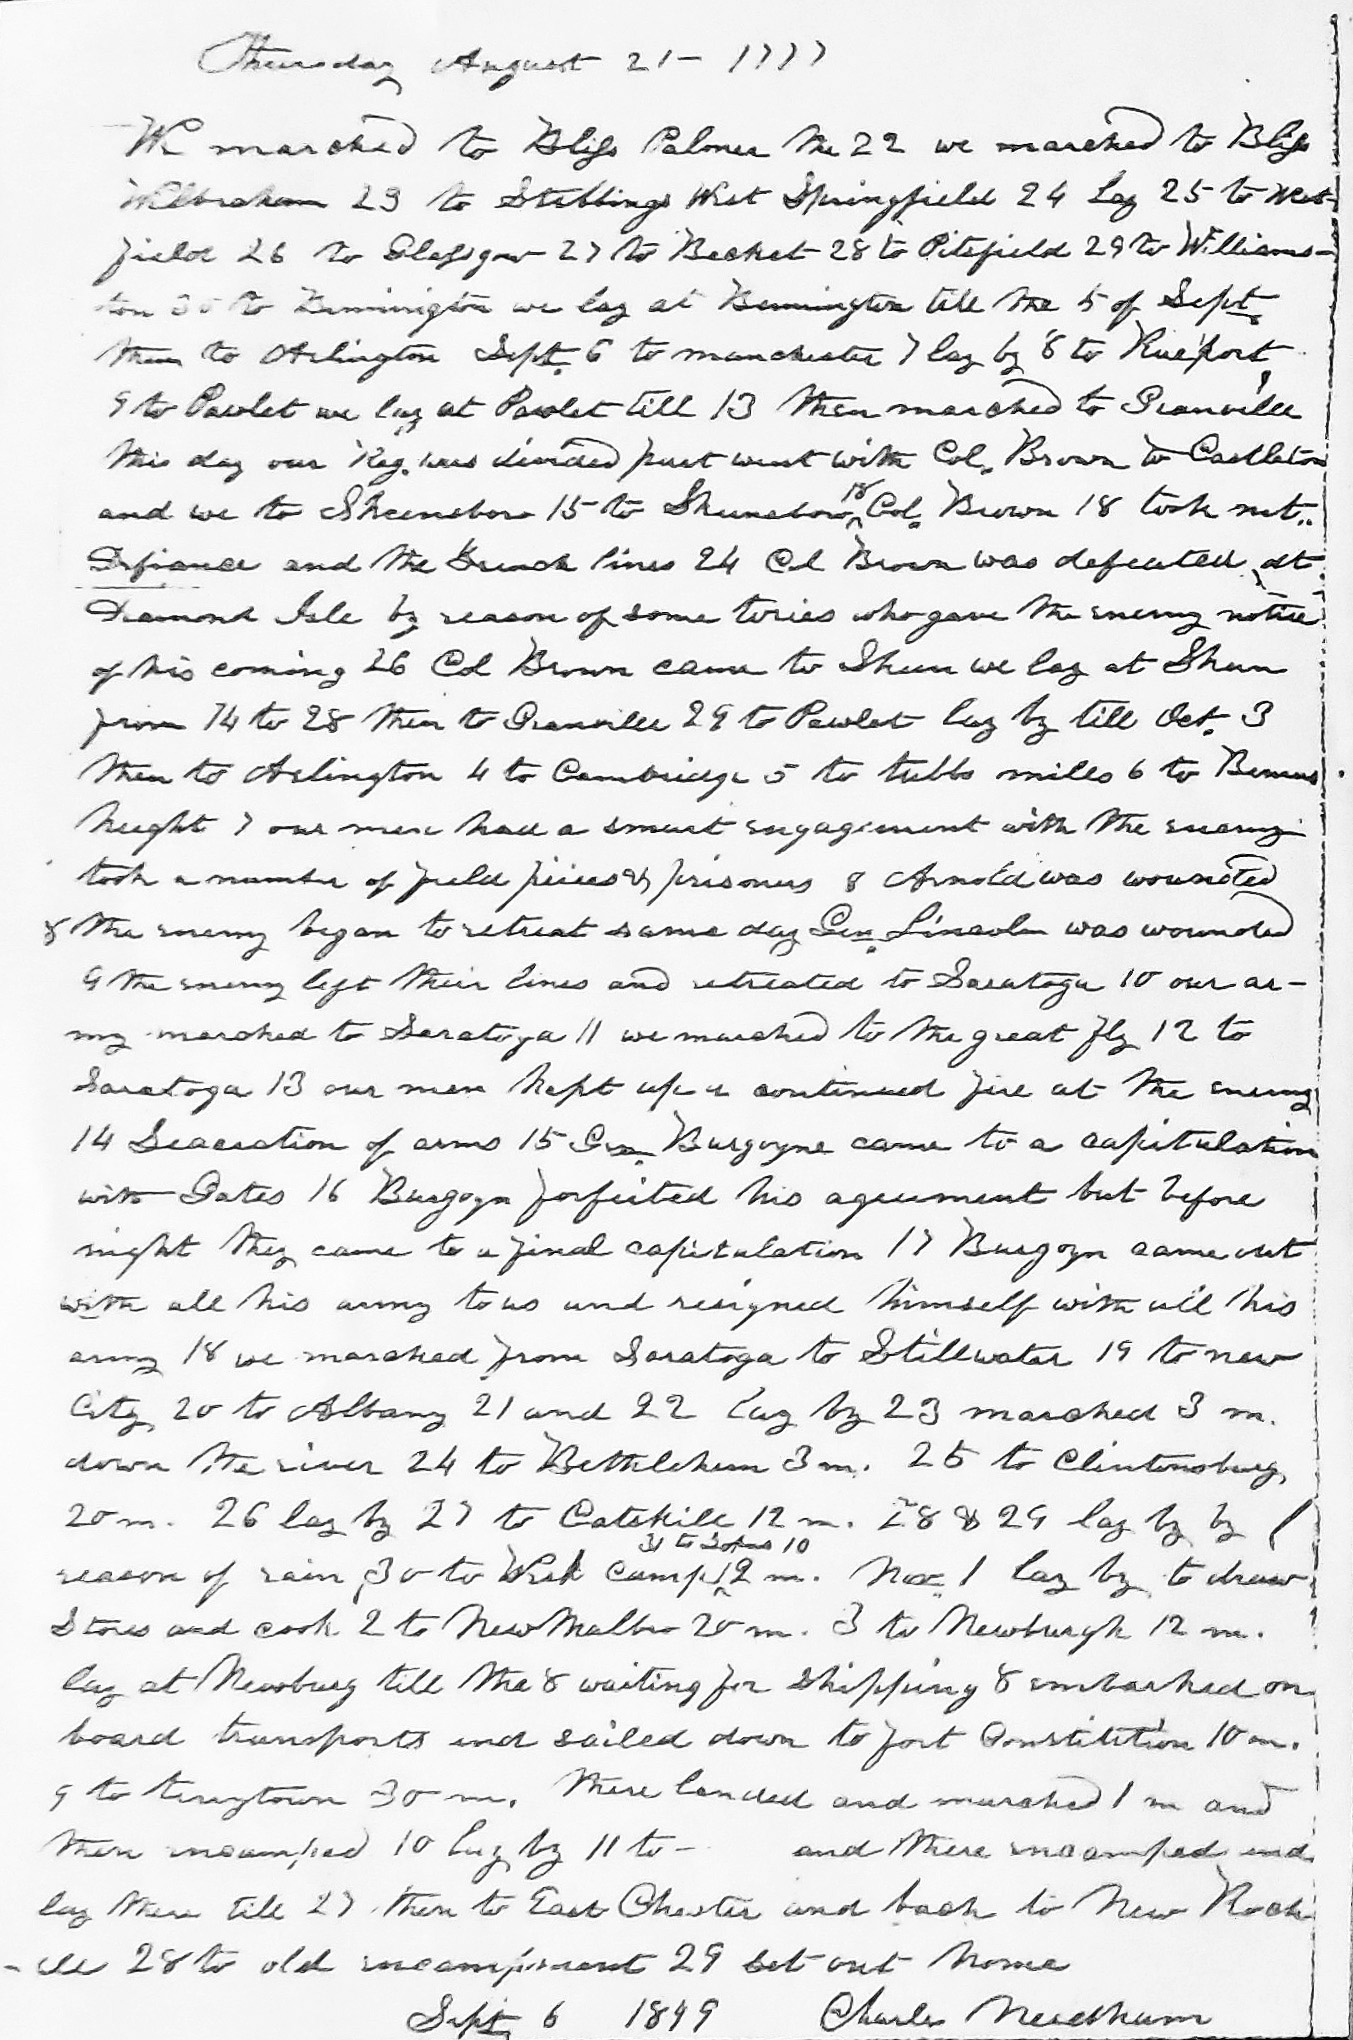 Thursday August 21 - 1777
We marched to Bliss Palmer the 22 we marched to Bliss
Wilbraham 23 to Stebbings West Springfield 24 lay 25 to West-
field 26 to Glassgow 27 to Becket 28 to Pitsfield 29 to Williams-
ton 30 to Bennington we lay at Bennington till the 5 of Sept.
then to Arlington Sept. 6 to manchester 7 lay by 8 to Rueport
9 to Pawlet we lay at Pawlet till 13 then marched to Granville
this day our Reg. was divided part went with Col. Brown to Castleton
and we to Skeensboro 15 to Skeensboro 18 Col. Brown 18 took mt..
Defiance and the french lines 24 Col Brown was defeated at
Diamond Isle by reason of some tories who gave the enemy notice
of his coming 26 Col Brown came to Skeen we lay at Skeen
from 14 to 28 then to Granville 29 to Pawlet lay by till Oct. 3
then to Arlington 4 to Cambridge 5 to tubbs mills 6 to Bemus
height 7 our men had a smart engagement with the enemy
took a number of field pieces & prisoners 8 Arnold was wounded
& the enemy began to retreat same day Gen. Lincoln was wounded
9 the enemy left their lines and retreated to Saratoga 10 our ar-
my marched to Saratoga 11 we marched to the great fly 12 to
Saratoga 13 our men kept up a continued fire at the enemy
14 Seaceation of arms 15 Gen. Burgoyne came to a capitulation
with Gates 16 Burgoyn forfeited his agreement but before
night they came to a final capitulation 17 Burgoyn came out
with all his army to us and resigned himself with all his
army 18 we marched from Saratoga to Stillwater 19 to new
City 20 to Albany 21 and 22 lay by 23 marched 3 m.
down the river 24 to Bethlehem 3 m. 25 to Clintonsburg
20 m. 26 lay by 27 to Catskill 12 m. 28 & 29 lay by by
reason of rain 30 to West Camp 12 m. 31 to 10 Nov. 1 lay by to draw
Stores and cook 2 to New Malbro 20 m. 3 to Newburgh 12 m.
lay at Newburg till the 8 waiting for shipping 8 embarked on
board transports and sailed down to fort Constitution 10 m.
9 to terrytown 30 m. there landed and marched 1 m and
there incamped 10 lay by 11 to - and there incamped and
lay there till 27 then to East Chester and back to New Roch-
-ele 28 to old incampment 29 set out home
Sept 6 1849 Charles Needham